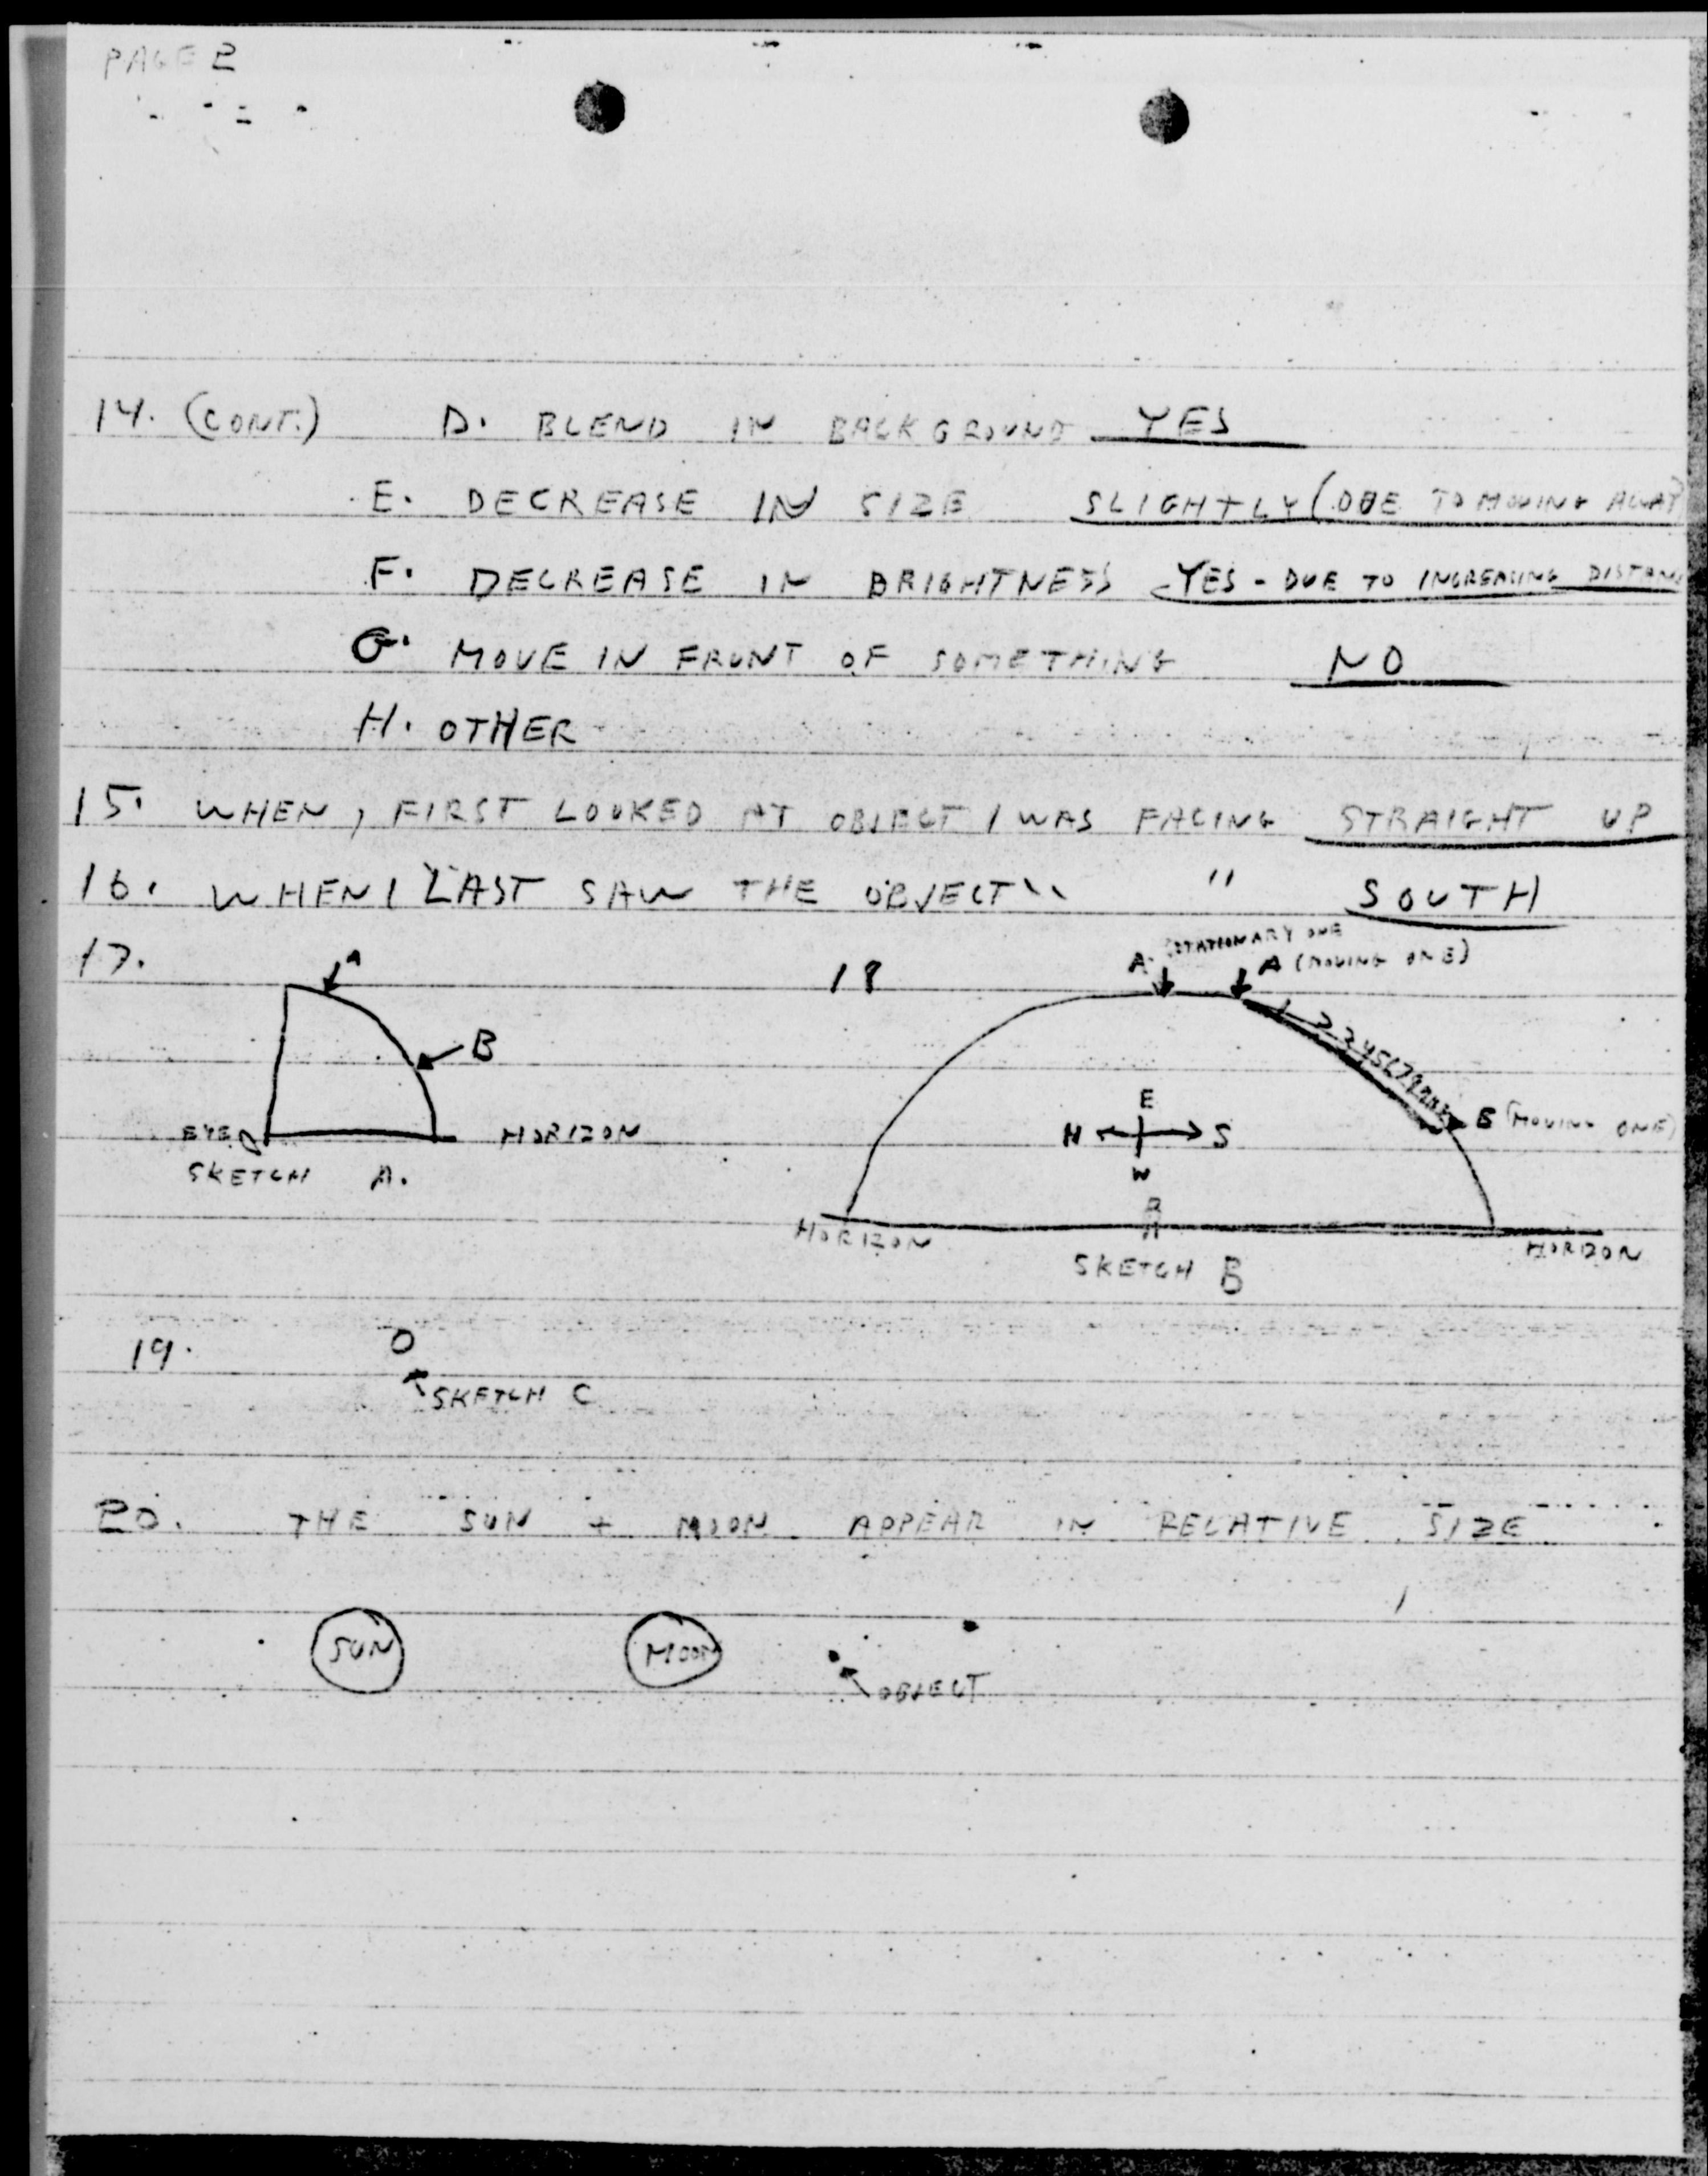 PAGE 2
14. (CONT.) D. BLEND IN BACKGROUND YES
E. DECREASE IN SIZE SLIGHTLY (DUE TO MOVING AWAY)
F. DECREASE IN BRIGHTNESS YES - DUE TO INCREASING DISTAN
G. MOVE IN FRONT OF SOMETHING NO
H. OTHER
15. WHEN I FIRST LOOKED AT OBJECT I WAS FACING STRAIGHT UP
16. WHEN I LAST SAW THE OBJECT " " SOUTH
17.
A
B
EYE HORIZON
SKETCH A.
18
A (STATIONARY ONE
A (MOVING ONE)
1 2 3 4 5 6 7 8
B (MOVING ONE)
E
N S
W
HORIZON HORIZON
SKETCH B
19.
SKETCH C
20. THE SUN + MOON APPEAR IN RELATIVE SIZE
SUN MOON
OBJECT